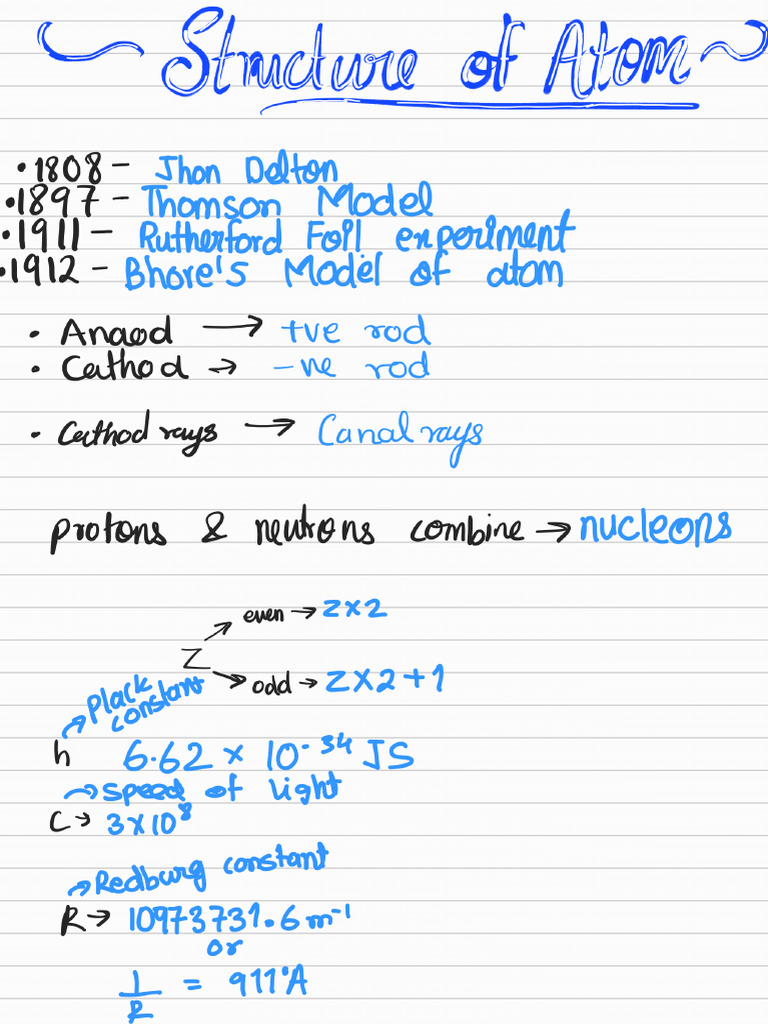 Structure of Atom
• 1808 - Jhon Dalton
• 1897 - Thomson Model
• 1911 - Rutherford Foil experiment
• 1912 - Bhore's Model of atom
• Anaod → +ve rod
• Cathod → -ve rod
• Cathod rays → Canal rays
protons & neutrons combine → nucleons
even → Z×2
Z
odd → Z×2+1
Plack constant
h 6.62 × 10⁻³⁴ JS
speed of light
C → 3×10⁸
Redburg constant
R → 10973731.6 m⁻¹
or
1/R = 911°A